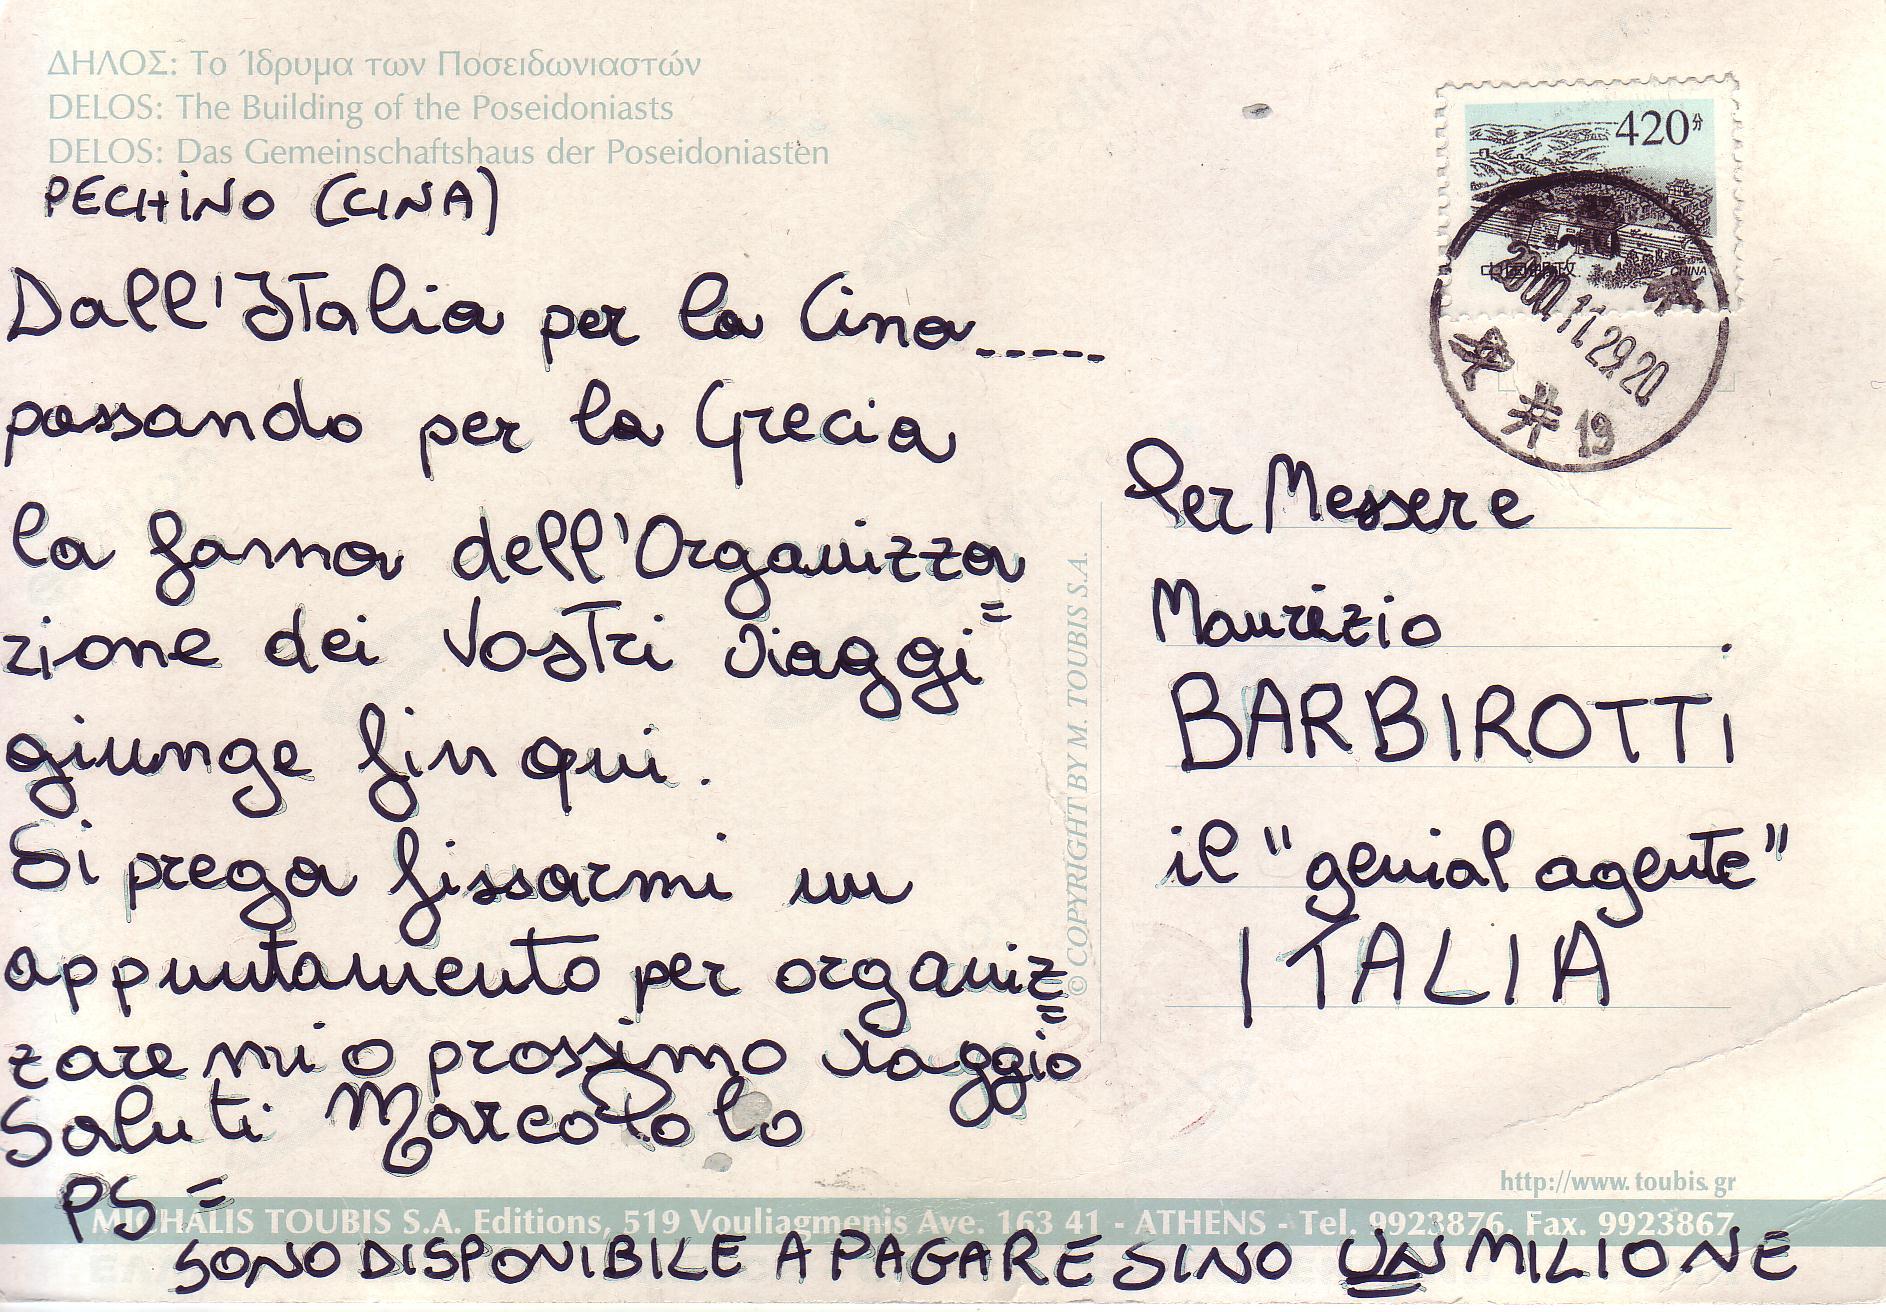 ΔΗΛΟΣ: Το Ίδρυμα των Ποσειδωνιαστών
DELOS: The Building of the Poseidoniasts
DELOS: Das Gemeinschaftshaus der Poseidoniasten
PECHINO (CINA)
Dall'Italia per la Cina.....
passando per la Grecia
la fama dell'Organizza
zione dei Vostri viaggi =
giunge fin qui.
Si prega fissarmi un
appuntamento per organiz
zare mio prossimo viaggio =
Saluti Marco Polo
PS =
SONO DISPONIBILE A PAGARE SINO UN MILIONE
420分
中国邮政 CHINA
2000.11.29.20
井 19
Per Messere
Maurizio
BARBIROTTI
il "genial agente"
ITALIA
© COPYRIGHT BY M. TOUBIS S.A.
http://www.toubis.gr
MICHALIS TOUBIS S.A. Editions, 519 Vouliagmenis Ave. 163 41 - ATHENS - Tel. 9923876, Fax. 9923867